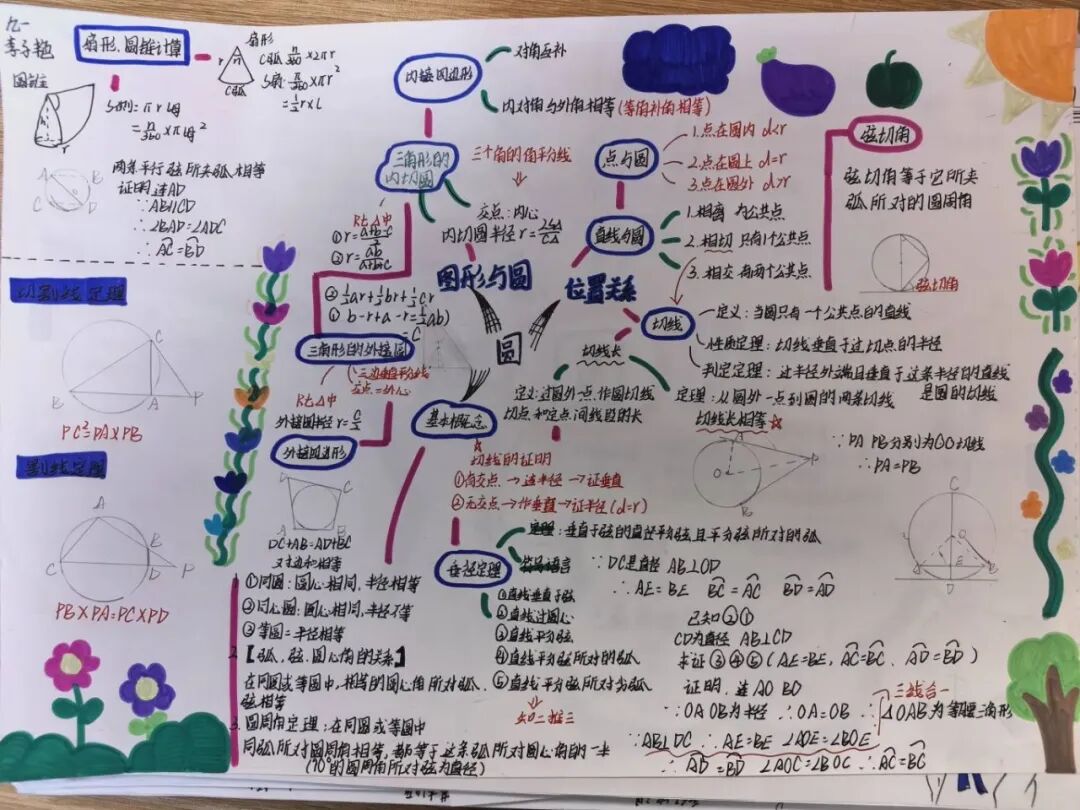 九一
扇形、圆锥计算
圆锥
S侧=πr
扇形
C弧=n/360×2πr
S扇=n/360×πr²
=1/2 r×L
C弧
两条平行弦所夹弧相等
证明:连AD
∵AB∥CD
∴∠BAD=∠ADC
∴AC=BD
切割线定理
PC²=PA×PB
割线定理
PB×PA=PC×PD
内接四边形
对角互补
内对角与外角相等(等角补角相等)
三角形的
内切圆
三个角的角平分线
交点:内心
内切圆半径r=
Rt△中
①r=a+b-c/2
②r=ab/a+b+c
②1/2ar+1/2br+1/2cr
图形与圆
三角形的外接圆
三边垂直平分线
交点=外心
Rt△中
外接圆半径r=c/2
外接四边形
DC+AB=AD+BC
对边和相等
圆
位置关系
点与圆
1.点在圆内 d<r
2.点在圆上 d=r
3.点在圆外 d>r
直线与圆
1.相离 
2.相切 只有1个公共点
3.相交 有两个公共点
弦切角
弦切角等于它所夹
弧所对的圆周角
弦切角
切线
定义:当圆只有一个公共点的直线
性质定理:切线垂直于过切点的半径
判定定理:过半径外端且垂直于这条半径的直线
是圆的切线
切线长
定义:过圆外一点作圆切线
切点和定点间线段的长
定理:从圆外一点到圆的两条切线
切线长相等
∵PA PB分别为⊙O切线
∴PA=PB
基本概念
切线的证明
①有交点→连半径→证垂直
②无交点→作垂直→证半径(d=r)
垂径定理
定理:垂直于弦的直径平分弦且平分弦所对的弧
符号语言
∵DC是直径 AB⊥CD
∴AE=BE BC=AC BD=AD
①直线垂直于弦
②直线过圆心
③直线平分弦
④直线平分弦所对的弧
⑤直线平分弦所对劣弧
知二推三
已知②①
CD为直径 AB⊥CD
求证③④⑤(AE=BE,AC=BC,AD=BD)
证明:连AO BO
∵OA OB为半径 ∴OA=OB
三线合一
△OAB为等腰三角形
∵AB⊥DC ∴AE=BE ∠AOE=∠BOE
∴AD=BD ∠AOC=∠BOC ∴AC=BC
①同圆:圆心相同,半径相等
②同心圆:圆心相同,半径不等
③等圆=半径相等
2.【弧、弦、圆心角的关系】
在同圆或等圆中,相等的圆心角所对弧、
弦相等
3.圆周角定理:在同圆或等圆中
同弧所对圆周角相等,都等于这条弧所对圆心角的一半
(90°的圆周角所对弦为直径)